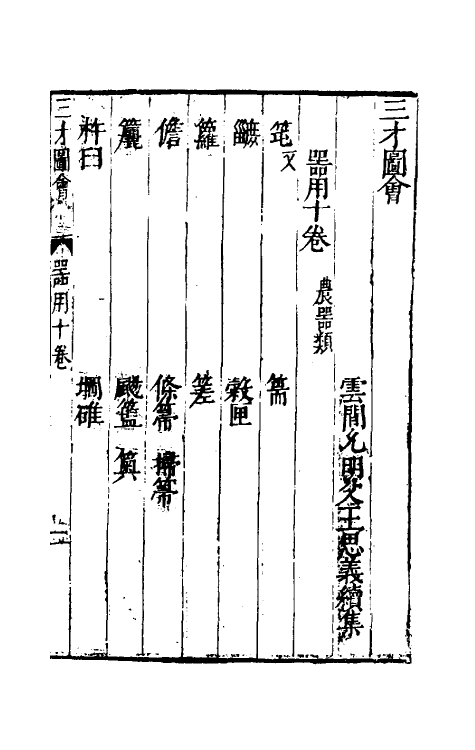 三才圖會
雲間允明父王思義續集
器用十卷 農器類
又 篅
穀匣
籮
儋 條箒 掃箒
颺籃 箕
杵臼 堈碓
三才圖會 器用十卷